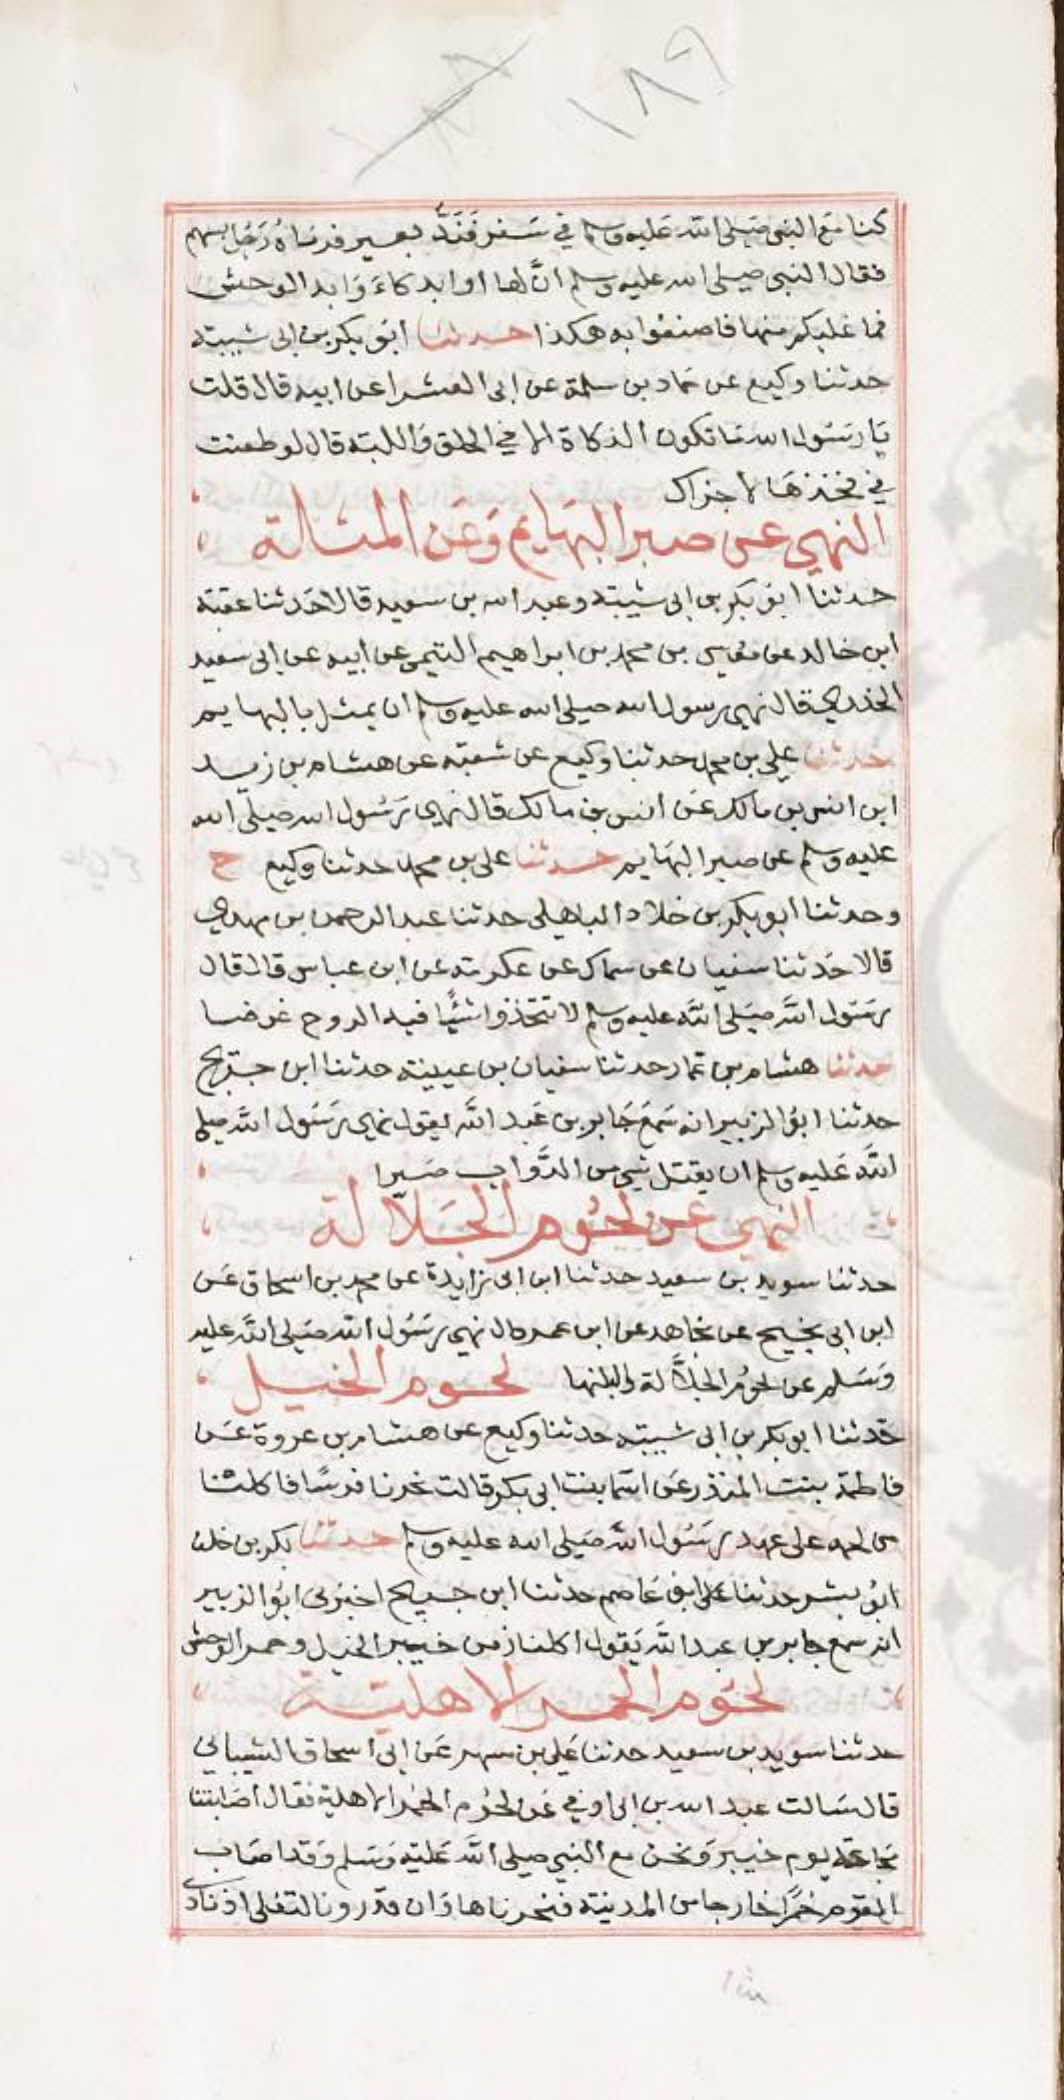 ١٨٩
كنا مع النبي صلى الله عليه وسلم في سفر فندّ بعير فرماه رجل بسهم
فقال النبي صلى الله عليه وسلم انّ لها اوابد كاوابد الوحش
فما غلبكم منها فاصنعوا به هكذا حدثنا ابو بكر بن ابى شيبته
حدثنا وكيع عن حماد بن سلمة عن ابى العشرا عن ابيه قال قلت
يا رسول الله ما تكون الذكاة الا في الحلق واللبته قال لو طعنت
في فخذها لاجزاك
النهي عن صبر البهايم وعن المثالة
حدثنا ابو بكر بن ابى شيبته وعبد الله بن سعيد قالا حدثنا عقبته
ابن خالد عن موسى بن محمد بن ابراهيم التيمى عن ابيه عن ابى سعيد
الخدري قال نهى رسول الله صلى الله عليه وسلم ان يمثل بالبهايم
حدثنا علي بن محمد حدثنا وكيع عن شعبته عن هشام بن زيد
ابن انس بن مالك عن انس بن مالك قال نهى رسول الله صلى الله
عليه وسلم عن صبر البهايم حدثنا على بن محمد حدثنا وكيع ح
وحدثنا ابو بكر بن خلاد الباهلى حدثنا عبد الرحمن بن مهدي
قالا حدثنا سفيان عن سماك عن عكرمته عن ابن عباس قال قال
رسول الله صلى الله عليه وسلم لا تتخذوا شئيا فيه الروح غرضا
حدثنا هشام بن عمار حدثنا سفيان بن عيينته حدثنا ابن جريج
حدثنا ابو الزبير انه سمع جابر بن عبد الله يقول نهى رسول الله صلى
الله عليه وسلم ان يقتل شي من الدواب صبرا
النهي عن لحوم الجلّالة
حدثنا سويد بن سعيد حدثنا ابن ابى زايدة عن محمد بن اسحاق عن
ابن ابى نجيح عن مجاهد عن ابن عمر قال نهى رسول الله صلى الله عليه
وسلم عن لحوم الجلّالة والبانها لحوم الخيل
حدثنا ابو بكر بن ابى شيبته حدثنا وكيع عن هشام بن عروة عن
فاطمة بنت المنذر عن اسما بنت ابى بكر قالت نحرنا فرسا فاكلنا
من لحمه على عهد رسول الله صلى الله عليه وسلم حدثنا بكر بن خلف
ابو بشر حدثنا ابو عاصم حدثنا ابن جريج اخبرنى ابو الزبير
انه سمع جابر بن عبد الله يقول اكلنا زمن خيبر الخيل وحمر الوحش
لحوم الحمر الاهليته
حدثنا سويد بن سعيد حدثنا علي بن مسهر عن ابى اسحاق الشيبانى
قال سالت عبد الله بن ابى اوفي عن لحوم الحمر الاهلية فقال اصابتنا
مجاعة يوم خيبر ونحن مع النبي صلى الله عليه وسلم وقد اصاب
القوم حمرا خارجا من المدينته فنحرناها وان قدورنا لتغلى اذ نادى